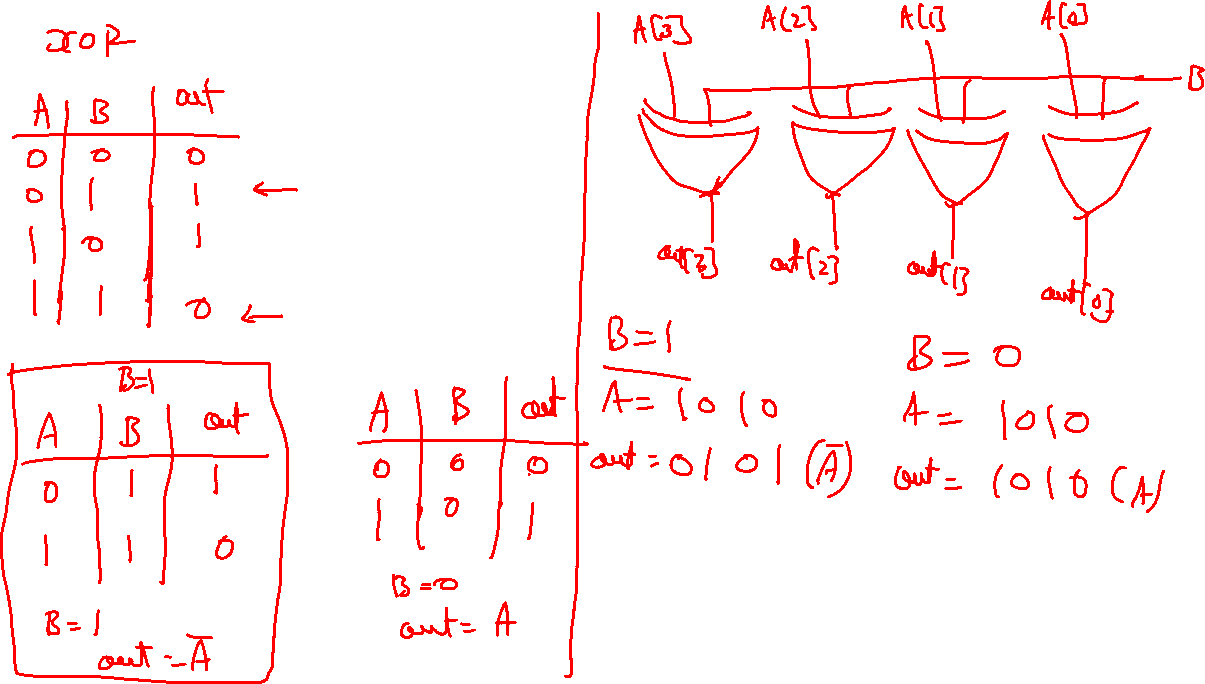 XOR
A B out
0 0 0
0 1 1 ←
1 0 1
1 1 0 ←
B=1
A B out
0 1 1
1 1 0
B=1
out = A̅
A B out
0 0 0
1 0 1
B=0
out = A
A[3] A[2] A[1] A[0]
B
out[3] out[2] out[1] out[0]
B=1
A= 1010
out = 0101 (A̅)
B= 0
A= 1010
out= 1010 (A)